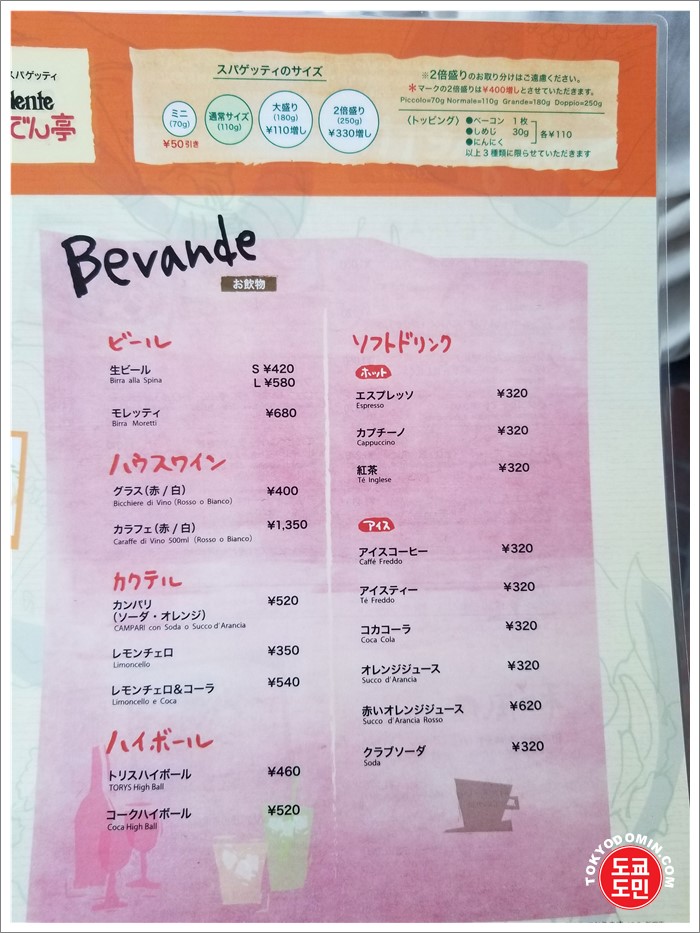 スパゲッティ
dente
でん亭
スパゲッティのサイズ
ミニ
(70g)
¥50引き
通常サイズ
(110g)
大盛り
(180g)
¥110増し
2倍盛り
(250g)
¥330増し
※2倍盛りのお取り分けはご遠慮ください。
*マークの2倍盛りは¥400増しとさせていただきます。
Piccolo=70g Normale=110g Grande=180g Doppio=250g
〈トッピング〉
●ベーコン 1枚
●しめじ 30g
●にんにく
各¥110
以上3種類に限らせていただきます
Bevande
お飲物
ビール
生ビール S ¥420
Birra alla Spina L ¥580
モレッティ ¥680
Birra Moretti
ハウスワイン
グラス(赤/白) ¥400
Bicchiere di Vino (Rosso o Bianco)
カラフェ(赤/白) ¥1,350
Caraffe di Vino 500ml (Rosso o Bianco)
カクテル
カンパリ ¥520
(ソーダ・オレンジ)
CAMPARI con Soda o Succo d'Arancia
レモンチェロ ¥350
Limoncello
レモンチェロ&コーラ ¥540
Limoncello e Coca
ハイボール
トリスハイボール ¥460
TORYS High Ball
コークハイボール ¥520
Coca High Ball
ソフトドリンク
ホット
エスプレッソ ¥320
Espresso
カプチーノ ¥320
Cappuccino
紅茶 ¥320
Té Inglese
アイス
アイスコーヒー ¥320
Caffé Freddo
アイスティー ¥320
Té Freddo
コカコーラ ¥320
Coca Cola
オレンジジュース ¥320
Succo d'Arancia
赤いオレンジジュース ¥620
Succo d'Arancia Rosso
クラブソーダ ¥320
Soda
TOKYODOMIN.COM
도쿄
도민